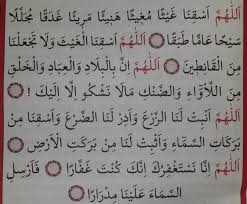 اَللّٰهُمَّ اَسْقِنَا غَيْثًا مُغِيثًا هَنِيئًا مَرِيئًا غَدَقًا مُجَلَّلًا
سَيْحًا عَامًّا طَبَقًا اَللّٰهُمَّ اَسْقِنَا الْغَيْثَ وَلَا تَجْعَلْنَا
مِنَ الْقَانِطِينَ اَللّٰهُمَّ اِنَّ بِالْبِلَادِ وَالْعِبَادِ وَالْخَلْقِ
مِنَ اللَّأْوَاءِ وَالضَّنْكِ مَالَا نَشْكُو اِلَّا اِلَيْكَ !
اَللّٰهُمَّ اَنْبِتْ لَنَا الزَّرْعَ وَاَدِرَّ لَنَا الضَّرْعَ وَاَسْقِنَا مِنْ
بَرَكَاتِ السَّمَاءِ وَاَنْبِتْ لَنَا مِنْ بَرَكَتِ الْاَرْضِ
اَللّٰهُمَّ اِنَّا نَسْتَغْفِرُكَ اِنَّكَ كُنْتَ غَفَّارًا فَاَرْسِلِ
السَّمَاءَ عَلَيْنَا مِدْرَارًا